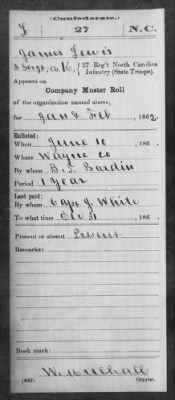 (Confederate.)
L 27 N.C.
James Lewis
2 Sergt, Co. K, 27 Reg't North Carolina
Infantry (State Troops).
Appears on
Company Muster Roll
of the organization named above,
for Jan & Feb, 1862
Enlisted:
When June 10, 186 .
Where Wayne co
By whom B. F. Bardin
Period 1 year
Last paid:
By whom Capt J White
To what time Dec 31, 186 .
Present or absent Present
Remarks:
Book mark:
(642) Copyist.